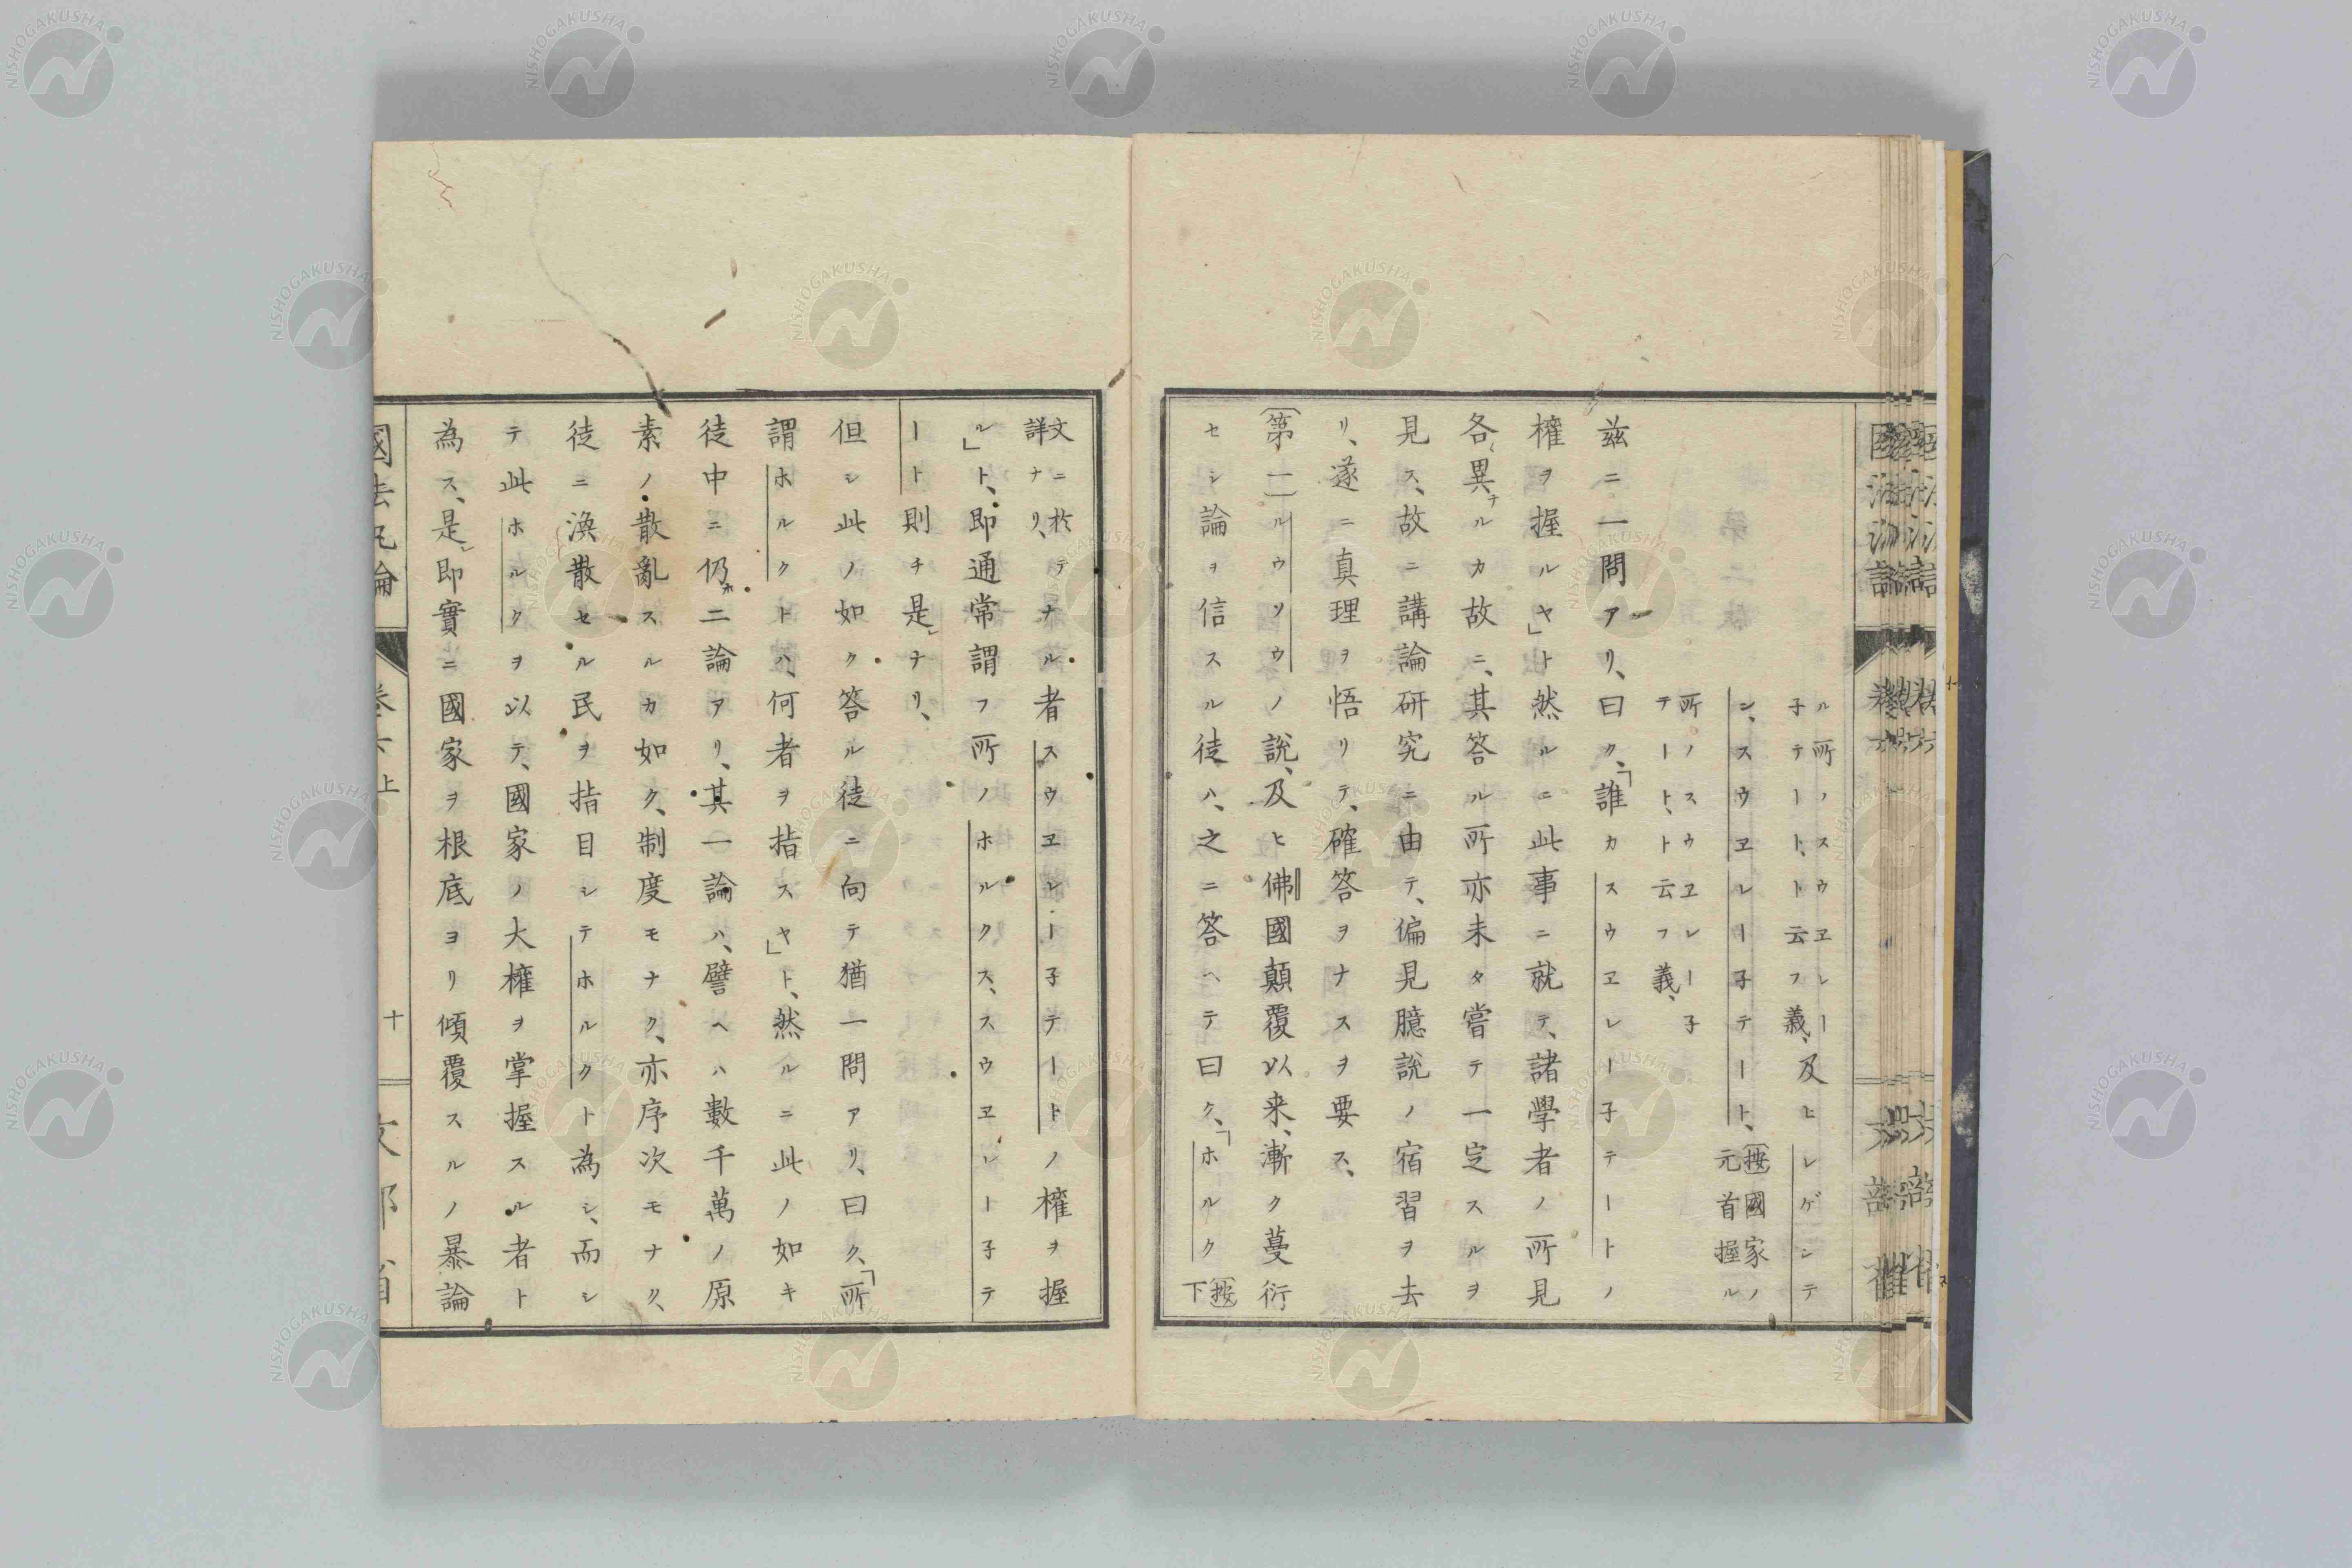 ル所ノスウヱレー
子テート、ト云フ義、及ヒレゲンテ
ン、スウヱレー子テート、(按國家ノ
元首握ル
所ノスウヱレー子
テート、ト云フ義、
茲ニ一問アリ、曰ク、「誰カスウヱレー子テートノ
權ヲ握ルヤ」ト然ルニ此事ニ就テ、諸學者ノ所見
各異ナルカ故ニ、其答ル所亦未タ嘗テ一定スルヲ
見ス、故ニ講論研究ニ由テ、偏見臆説ノ宿習ヲ去
リ、遂ニ真理ヲ悟リテ、確答ヲナスヲ要ス、
(第一)ルウソウノ説、及ヒ佛國顛覆以来、漸ク蔓衍
セシ論ヲ信スル徒ハ、之ニ答ヘテ曰ク、「ホルク(按
下
文ニ於テ
詳ナリ、
ナル者スウヱレー子テートノ權ヲ握
ル」ト、即通常謂フ所ノホルクス、スウヱレー子テ
ート則チ是ナリ、
但シ此ノ如ク答ル徒ニ向テ猶一問アリ、曰ク、「所
謂ホルクトハ、何者ヲ指スヤ」ト、然ルニ此ノ如キ
徒中ニ仍ホ二論アリ、其一論ハ、譬ヘハ數千萬ノ原
素ノ散亂スルカ如ク、制度モナク、亦序次モナク、
徒ニ渙散セル民ヲ指目シテホルクト為シ、而シ
テ此ホルクヲ以テ、國家ノ大權ヲ掌握スル者ト
為ス、是即實ニ國家ヲ根底ヨリ傾覆スルノ暴論
國法汎論
卷六上
十
文部省
NISHOGAKUSHA